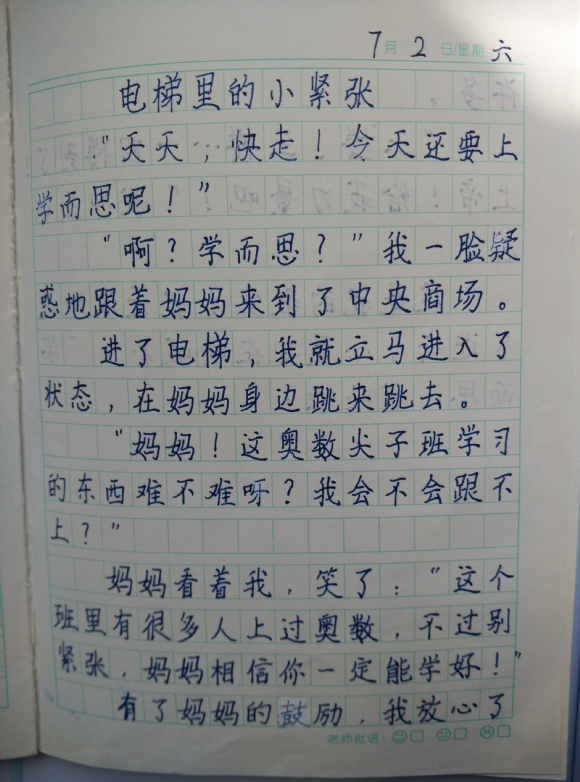 7月2日/星期六
电梯里的小紧张
“天天，快走！今天还要上
学而思呢！”
“啊？学而思？”我一脸疑
惑地跟着妈妈来到了中央商场。
进了电梯，我就立马进入了
状态，在妈妈身边跳来跳去。
“妈妈！这奥数尖子班学习
的东西难不难呀？我会不会跟不
上？”
妈妈看着我，笑了：“这个
班里有很多人上过奥数，不过别
紧张，妈妈相信你一定能学好！”
有了妈妈的鼓励，我放心了
老师批语：